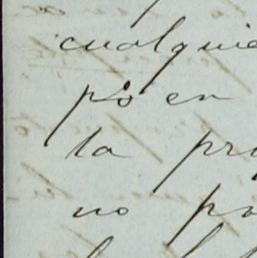 cualquie
po en
la pr
no po